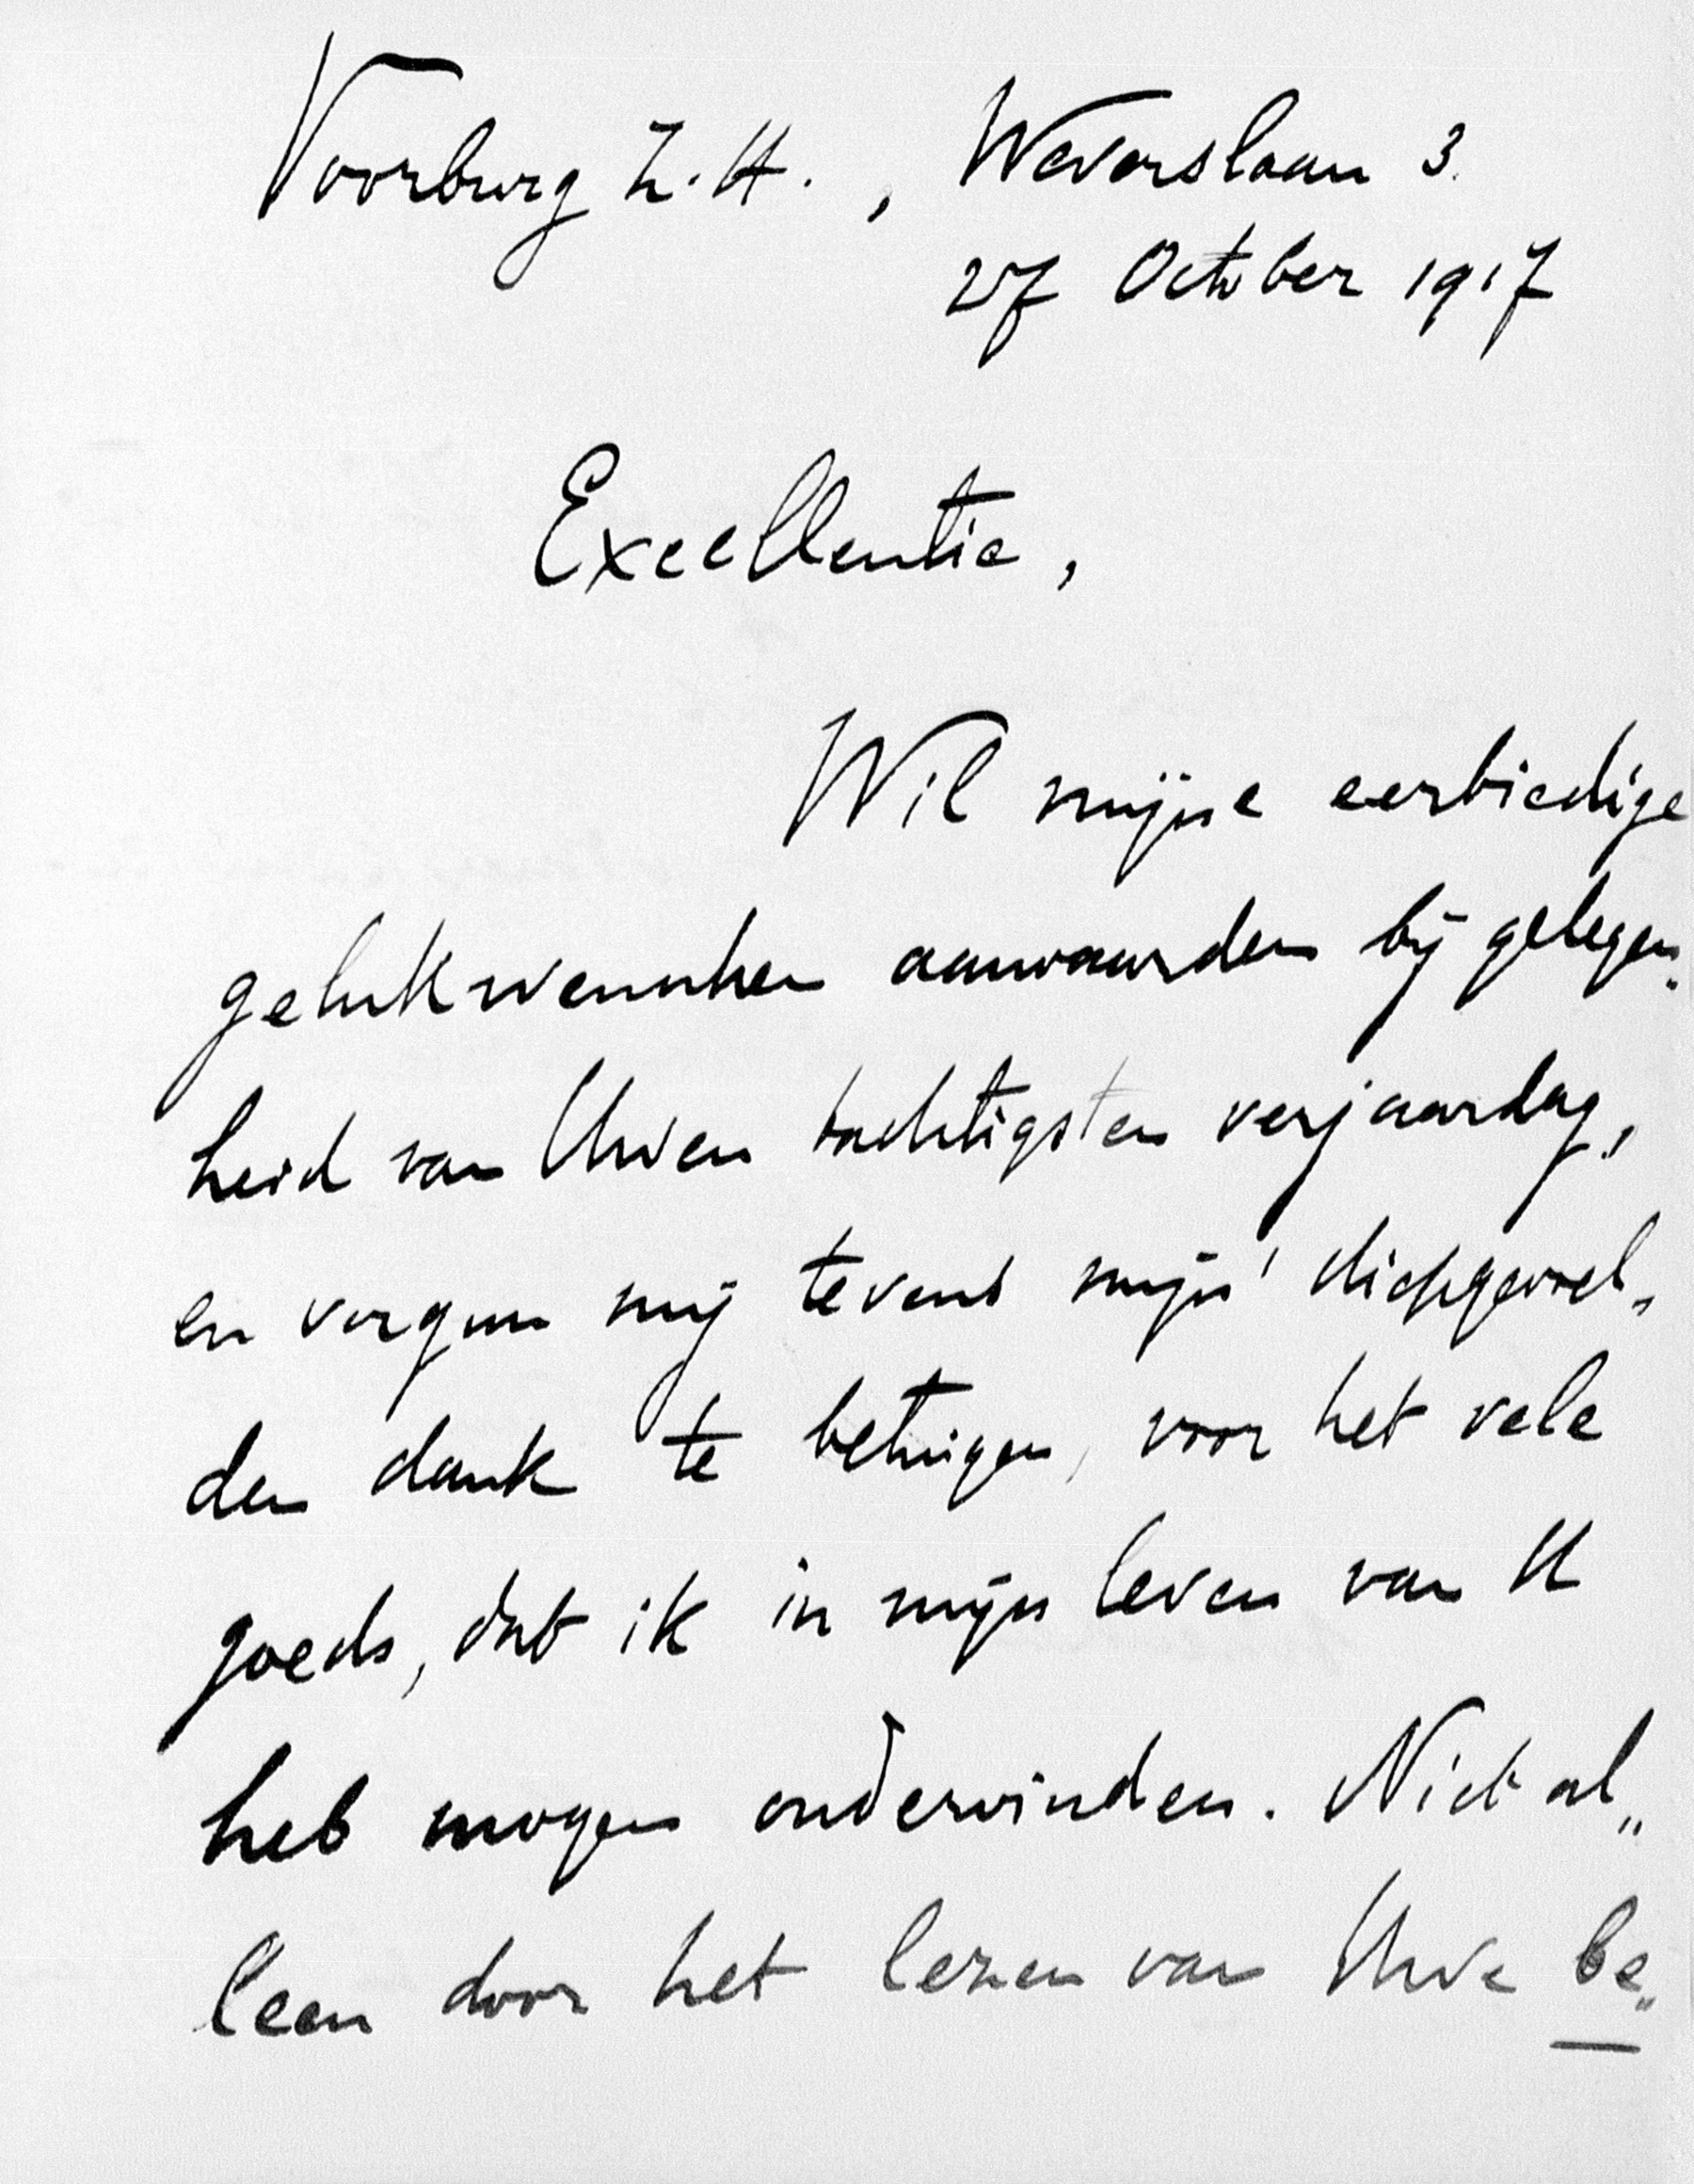 Voorburg Z.H., Weverslaan 3.
27 October 1917
Excellentie,
Wil mijne eerbiedige
gelukwenschen aanvaarden bij gelegen„
heid van Uwen tachtigsten verjaardag,
en vergun mij tevens mijn' diepgevoel„
den dank te betuigen, voor het vele
goeds, dat ik in mijn leven van U
heb mogen ondervinden. Niet al„
leen door het lezen van Uwe be„